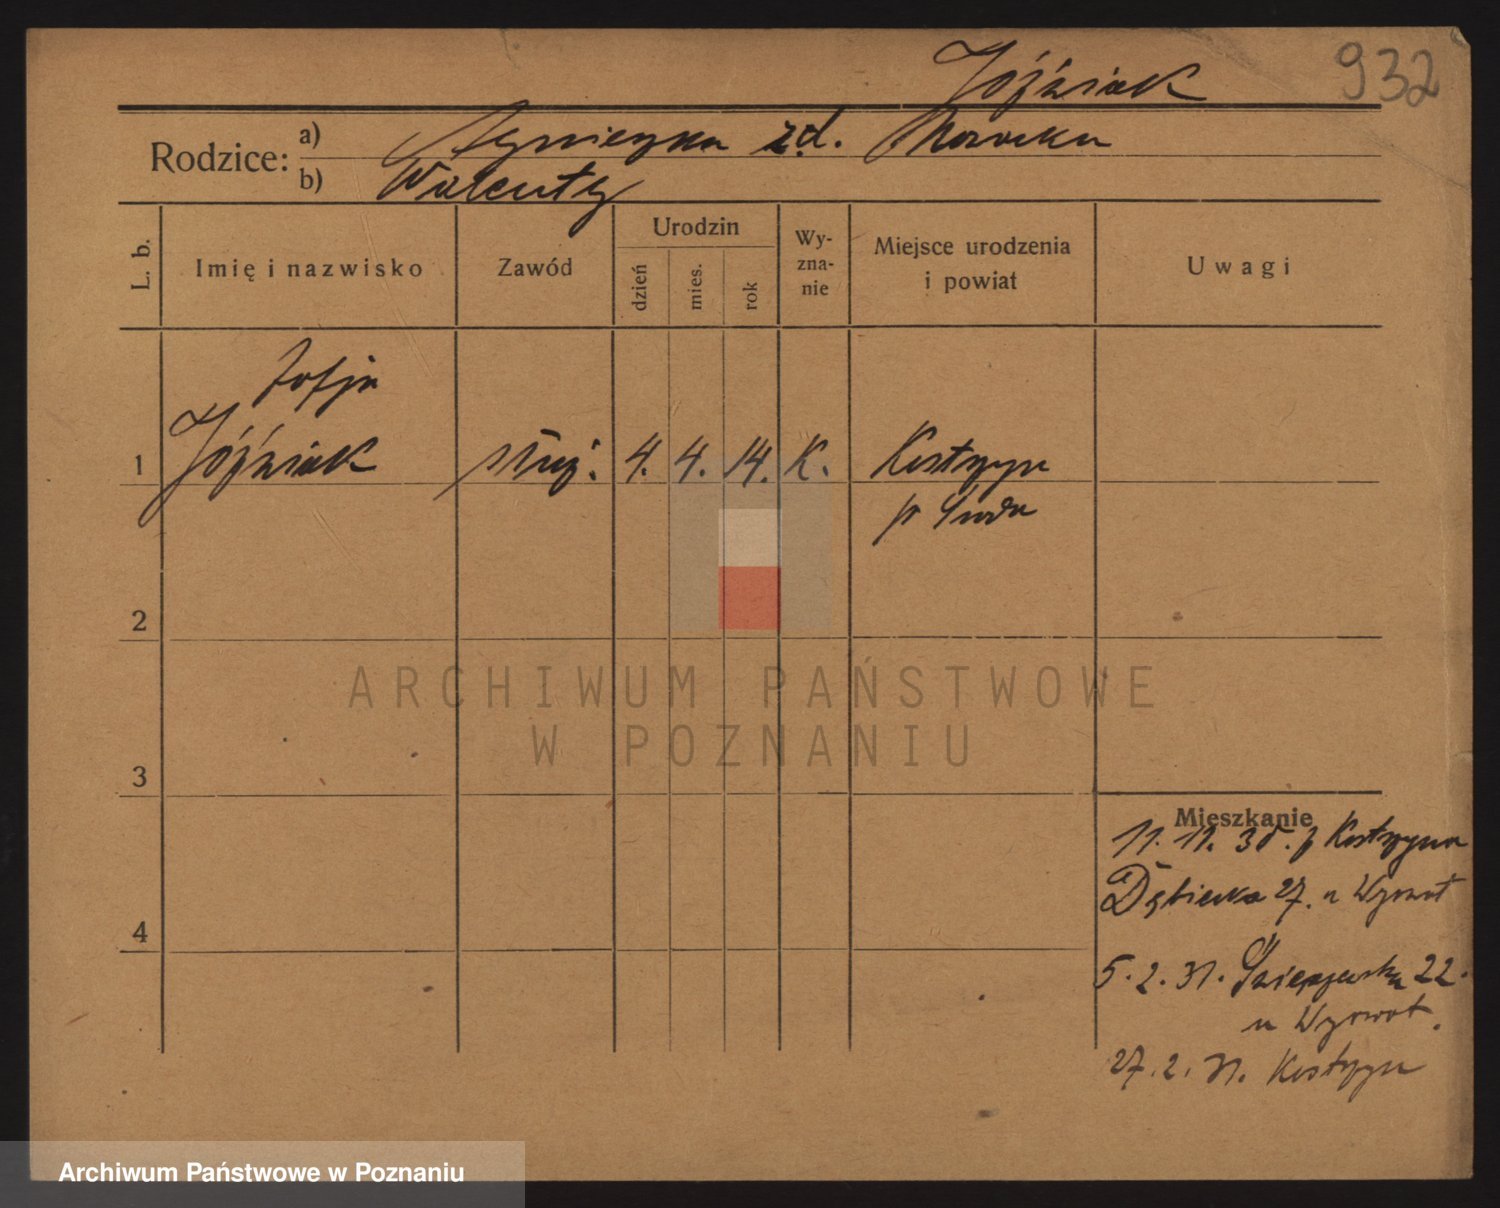 Jóźwiak 932
Rodzice: a) Agnieszka zd. Nowicka
b) Walenty
L. b. Imię i nazwisko Zawód Urodzin dzień mies. rok Wy-zna-nie Miejsce urodzenia i powiat Uwagi
Zofja
1 Jóźwiak służ. 4. 4. 14. K. Kostrzyn
p Środa
2
3
4
Mieszkanie
11. 11. 30. z Kostrzyna
27. u
5. 2. 31. 22.
u
27. 2. 31. Kostrzyn
ARCHIWUM PAŃSTWOWE
W POZNANIU
Archiwum Państwowe w Poznaniu